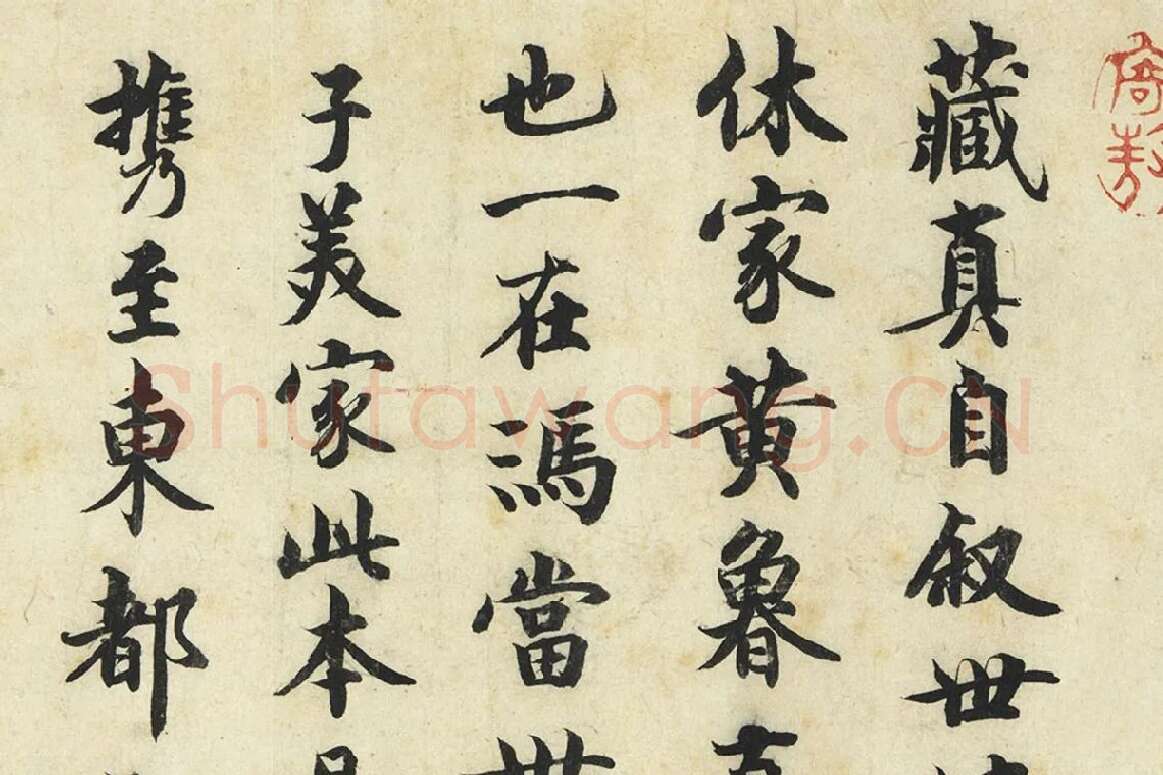 藏真自叙世
休家黄魯直
也一在馮當世
子美家此本
携至東都
Shufawang.CN